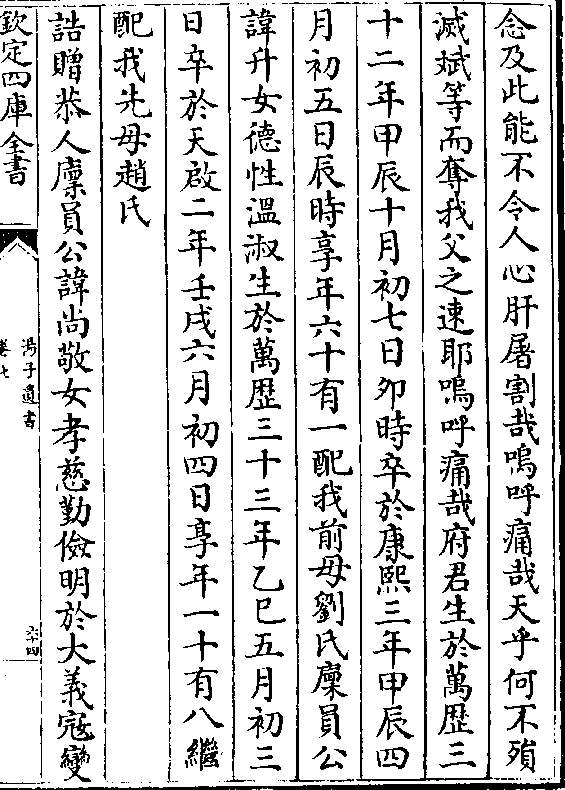 念及此能不令人心肝屠割哉嗚呼痛哉天乎何不殞
滅斌等而奪我父之速耶嗚呼痛哉府君生於萬歴三
十二年甲辰十月初七日夘時卒於康熙三年甲辰四
月初五日辰時享年六十有一配我前母劉氏廩員公
諱升女德性溫淑生於萬歴三十三年乙巳五月初三
日卒於天啟二年壬戌六月初四日享年一十有八繼
配我先母趙氏
誥贈恭人廩員公諱尚敬女孝慈勤儉明於大義宼變
欽定四庫全書
湯子遺書
卷七
六十四